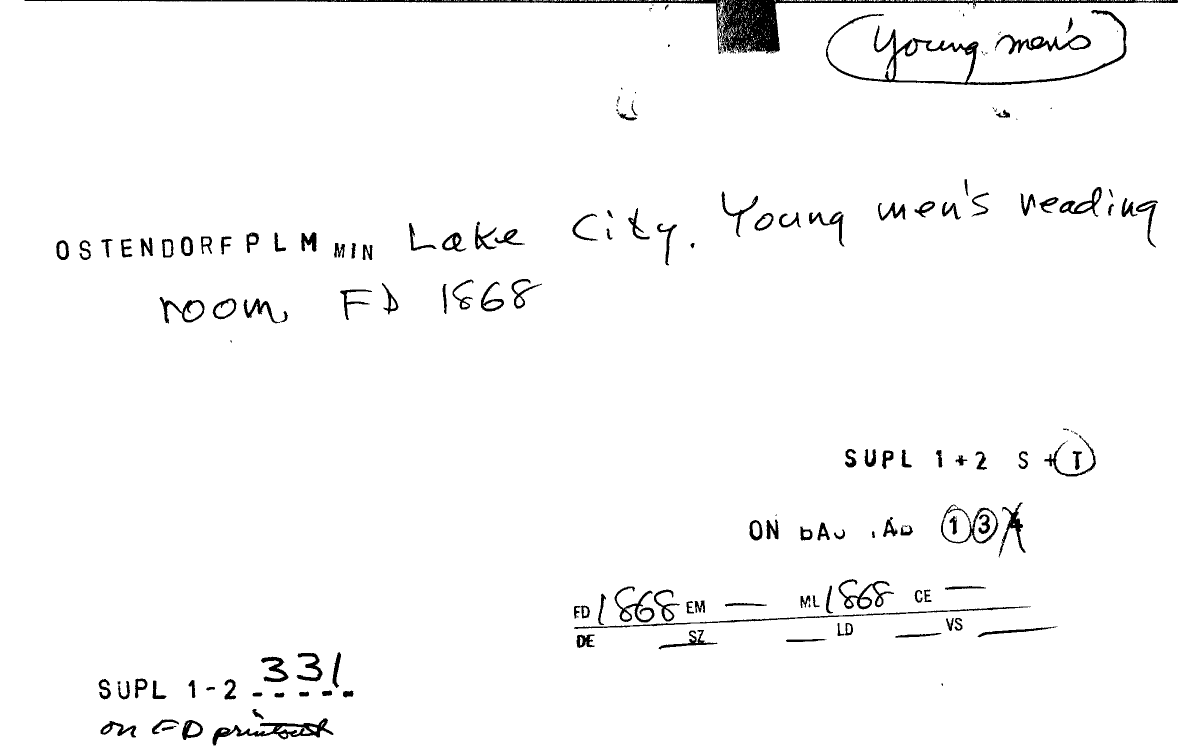 Young men's
OSTENDORF PLM MIN Lake City. Young men's reading
room, FD 1868
SUPL 1+2 S + T
ON 1 3 4
FD 1868 EM — ML 1868 CE —
DE SZ LD VS
SUPL 1-2 331
on FD printout